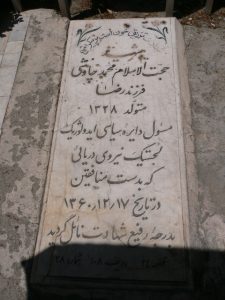 شهید
حجت الاسلام محمد
فرزند رضا
متولد ۱۳۲۸
مسئول دایره سیاسی ایدئولوژیک
لجستیک نیروی دریائی
که بدست منافقین
در تاریخ ۱۳۶۰،۱۲،۱۷
بدرجه رفیع شهادت نائل گردید